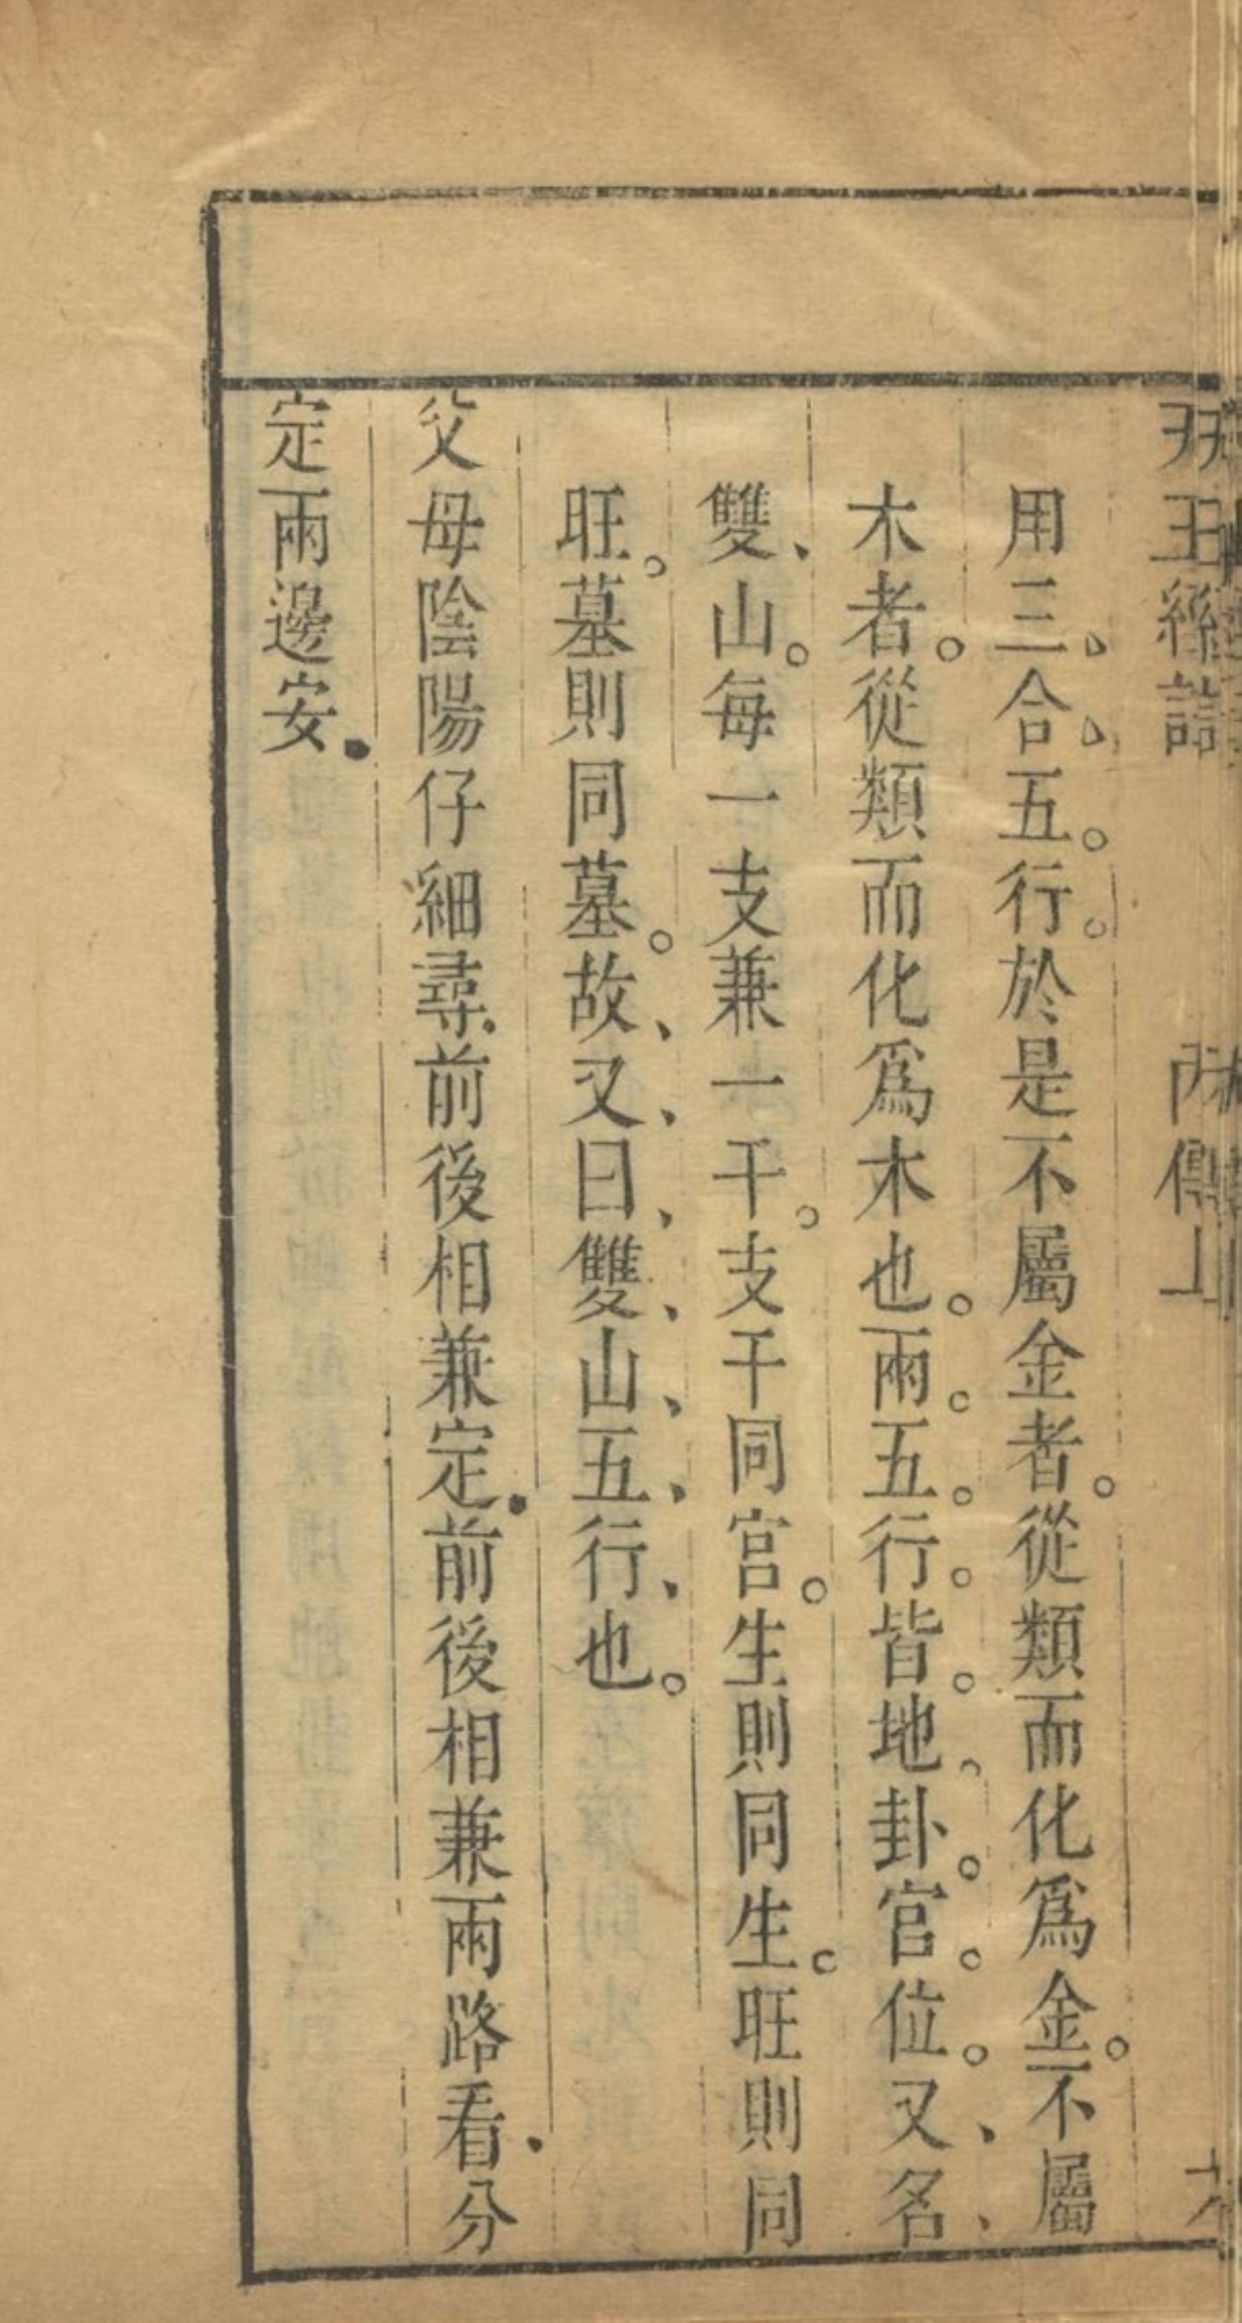 用三合五行於是不屬金者從類而化爲金不屬
木者從類而化爲木也兩五行皆地卦官位又名
雙山每一支兼一干支干同宫生則同生旺則同
旺墓則同墓故又曰雙山五行也
父母陰陽仔細尋前後相兼定前後相兼兩路看分
定兩邊安